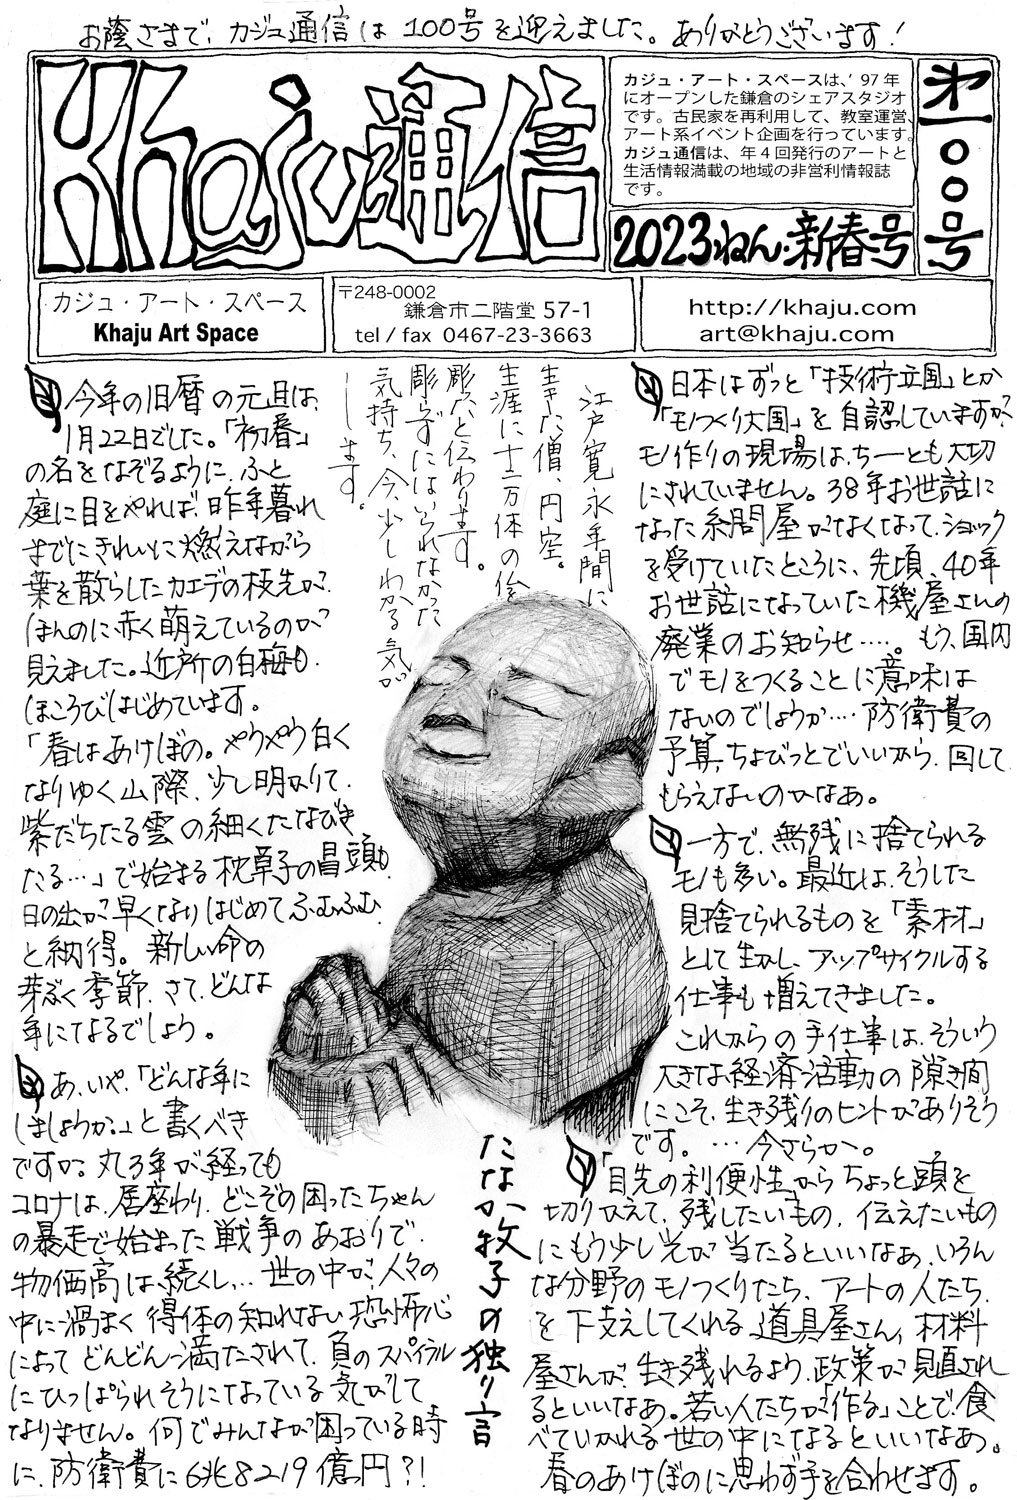 お蔭さまで、カジュ通信は100号を迎えました。ありがとうございます!
Khaju通信
カジュ・アート・スペースは、'97年
にオープンした鎌倉のシェアスタジオ
です。古民家を再利用して、教室運営、
アート系イベント企画を行っています。
カジュ通信は、年4回発行のアートと
生活情報満載の地域の非営利情報誌
です。
2023ねん・新春号
第一〇〇号
カジュ・アート・スペース
Khaju Art Space
〒248-0002
鎌倉市二階堂 57-1
tel / fax 0467-23-3663
http://khaju.com
art@khaju.com
今年の旧暦の元旦は、
1月22日でした。「初春」
の名をなぞるように、ふと
庭に目をやれば、昨年暮れ
までにきれいに燃えながら
葉を散らしたカエデの枝先が、
ほんのに赤く萌えているのが
見えました。近所の白梅も、
ほころびはじめています。
「春はあけぼの。やうやう白く
なりゆく山際、少し明かりて、
紫だちたる雲の細くたなびき
たる…」で始まる枕草子の冒頭も、
日の出が早くなりはじめてふむふむ、
と納得。新しい命の
芽ぶく季節、さて、どんな
年になるでしょう。
あ、いや、「どんな年に
しましょうか。」と書くべき
ですか。丸3年が経っても
コロナは、居座わり、どこぞの困ったちゃん
の暴走で始まった戦争のあおりで、
物価高は続くし、… 世の中が、人々の
中に渦まく得体の知れない恐怖心
によってどんどん満たされて、負のスパイラル
にひっぱられそうになっている気がして
なりません。何でみんなが困っている時
に、防衛費に6兆8219億円?!
江戸寛永年間に
生きた僧、円空。
生涯に十二万体の仏を
彫ったと伝わります。
彫らずにはいられなかった
気持ち、今、少しわかる気が
します。
たなか牧子の独り言
日本はずっと「技術立国」とか
「モノづくり大国」を自認していますが、
モノ作りの現場は、ちーとも大切
にされていません。38年お世話に
なった糸問屋がなくなって、ショック
を受けていたところに、先頃、40年
お世話になっていた機屋さんの
廃業のお知らせ……。もう、国内
でモノをつくることに意味は
ないのでしょうか…。防衛費の
予算、ちょびっとでいいから、回して
もらえないのかなあ。
一方で、無残に捨てられる
モノも多い。最近は、そうした
見捨てられるものを「素材」
として生かし、アップサイクルする
仕事も増えてきました。
これからの手仕事は、そういう
大きな経済活動の隙き間
にこそ、生き残りのヒントがありそう
です。… 今さらか。
「目先の利便性」からちょっと頭を
切りかえて、残したいもの、伝えたいもの
にもう少し光が当たるといいなあ。いろん
な分野のモノつくりたち、アートの人たち、
を下支えしてくれる道具屋さん、材料
屋さんが、生き残れるよう、政策が見直され
るといいなあ。若い人たちが「作る」ことで、食
べていかれる世の中になるといいなあ。
春のあけぼのに思わず手を合わせます。